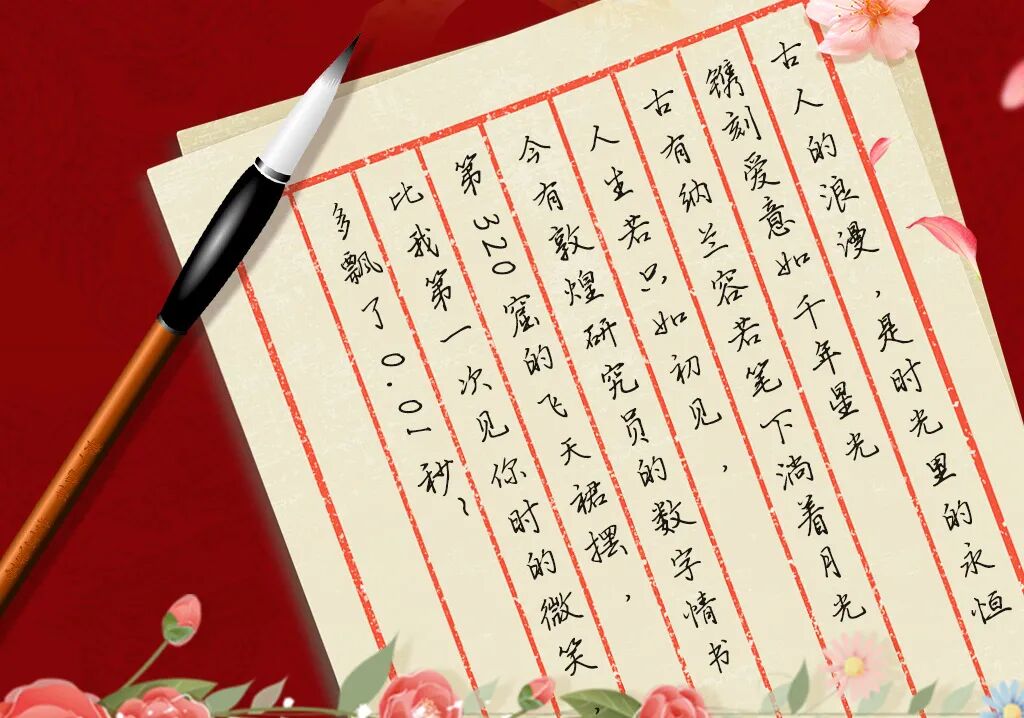 古人的浪漫，是时光里的永恒
镌刻爱意如千年星光
古有纳兰容若笔下淌着月光
人生若只如初见，
今有敦煌研究员的数字情书
第320窟的飞天裙摆，
比我第一次见你时的微笑，
多飘了0.01秒~